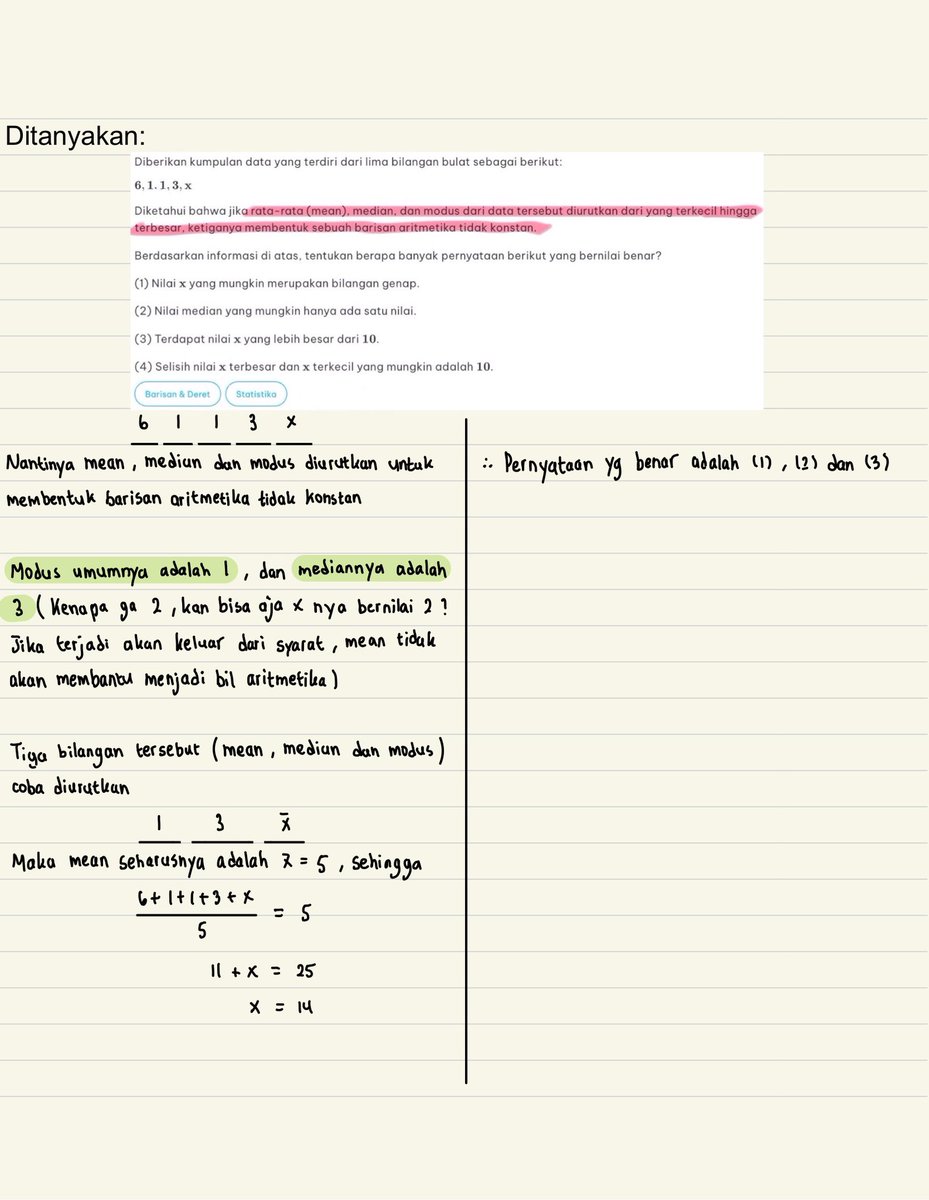 Ditanyakan:
Diberikan kumpulan data yang terdiri dari lima bilangan bulat sebagai berikut:
6, 1. 1, 3, x
Diketahui bahwa jika rata-rata (mean), median, dan modus dari data tersebut diurutkan dari yang terkecil hingga
terbesar, ketiganya membentuk sebuah barisan aritmetika tidak konstan.
Berdasarkan informasi di atas, tentukan berapa banyak pernyataan berikut yang bernilai benar?
(1) Nilai x yang mungkin merupakan bilangan genap.
(2) Nilai median yang mungkin hanya ada satu nilai.
(3) Terdapat nilai x yang lebih besar dari 10.
(4) Selisih nilai x terbesar dan x terkecil yang mungkin adalah 10.
Barisan & Deret Statistika
6 1 1 3 x
Nantinya mean, median dan modus diurutkan untuk
membentuk barisan aritmetika tidak konstan
Modus umumnya adalah 1, dan mediannya adalah
3 (Kenapa ga 2, kan bisa aja x nya bernilai 2?
Jika terjadi akan keluar dari syarat, mean tidak
akan membantu menjadi bil aritmetika)
Tiga bilangan tersebut (mean, median dan modus)
coba diurutkan
1 3 x̄
Maka mean seharusnya adalah x̄ = 5, sehingga
6+1+1+3+x
= 5
5
11 + x = 25
x = 14
∴ Pernyataan yg benar adalah (1), (2) dan (3)